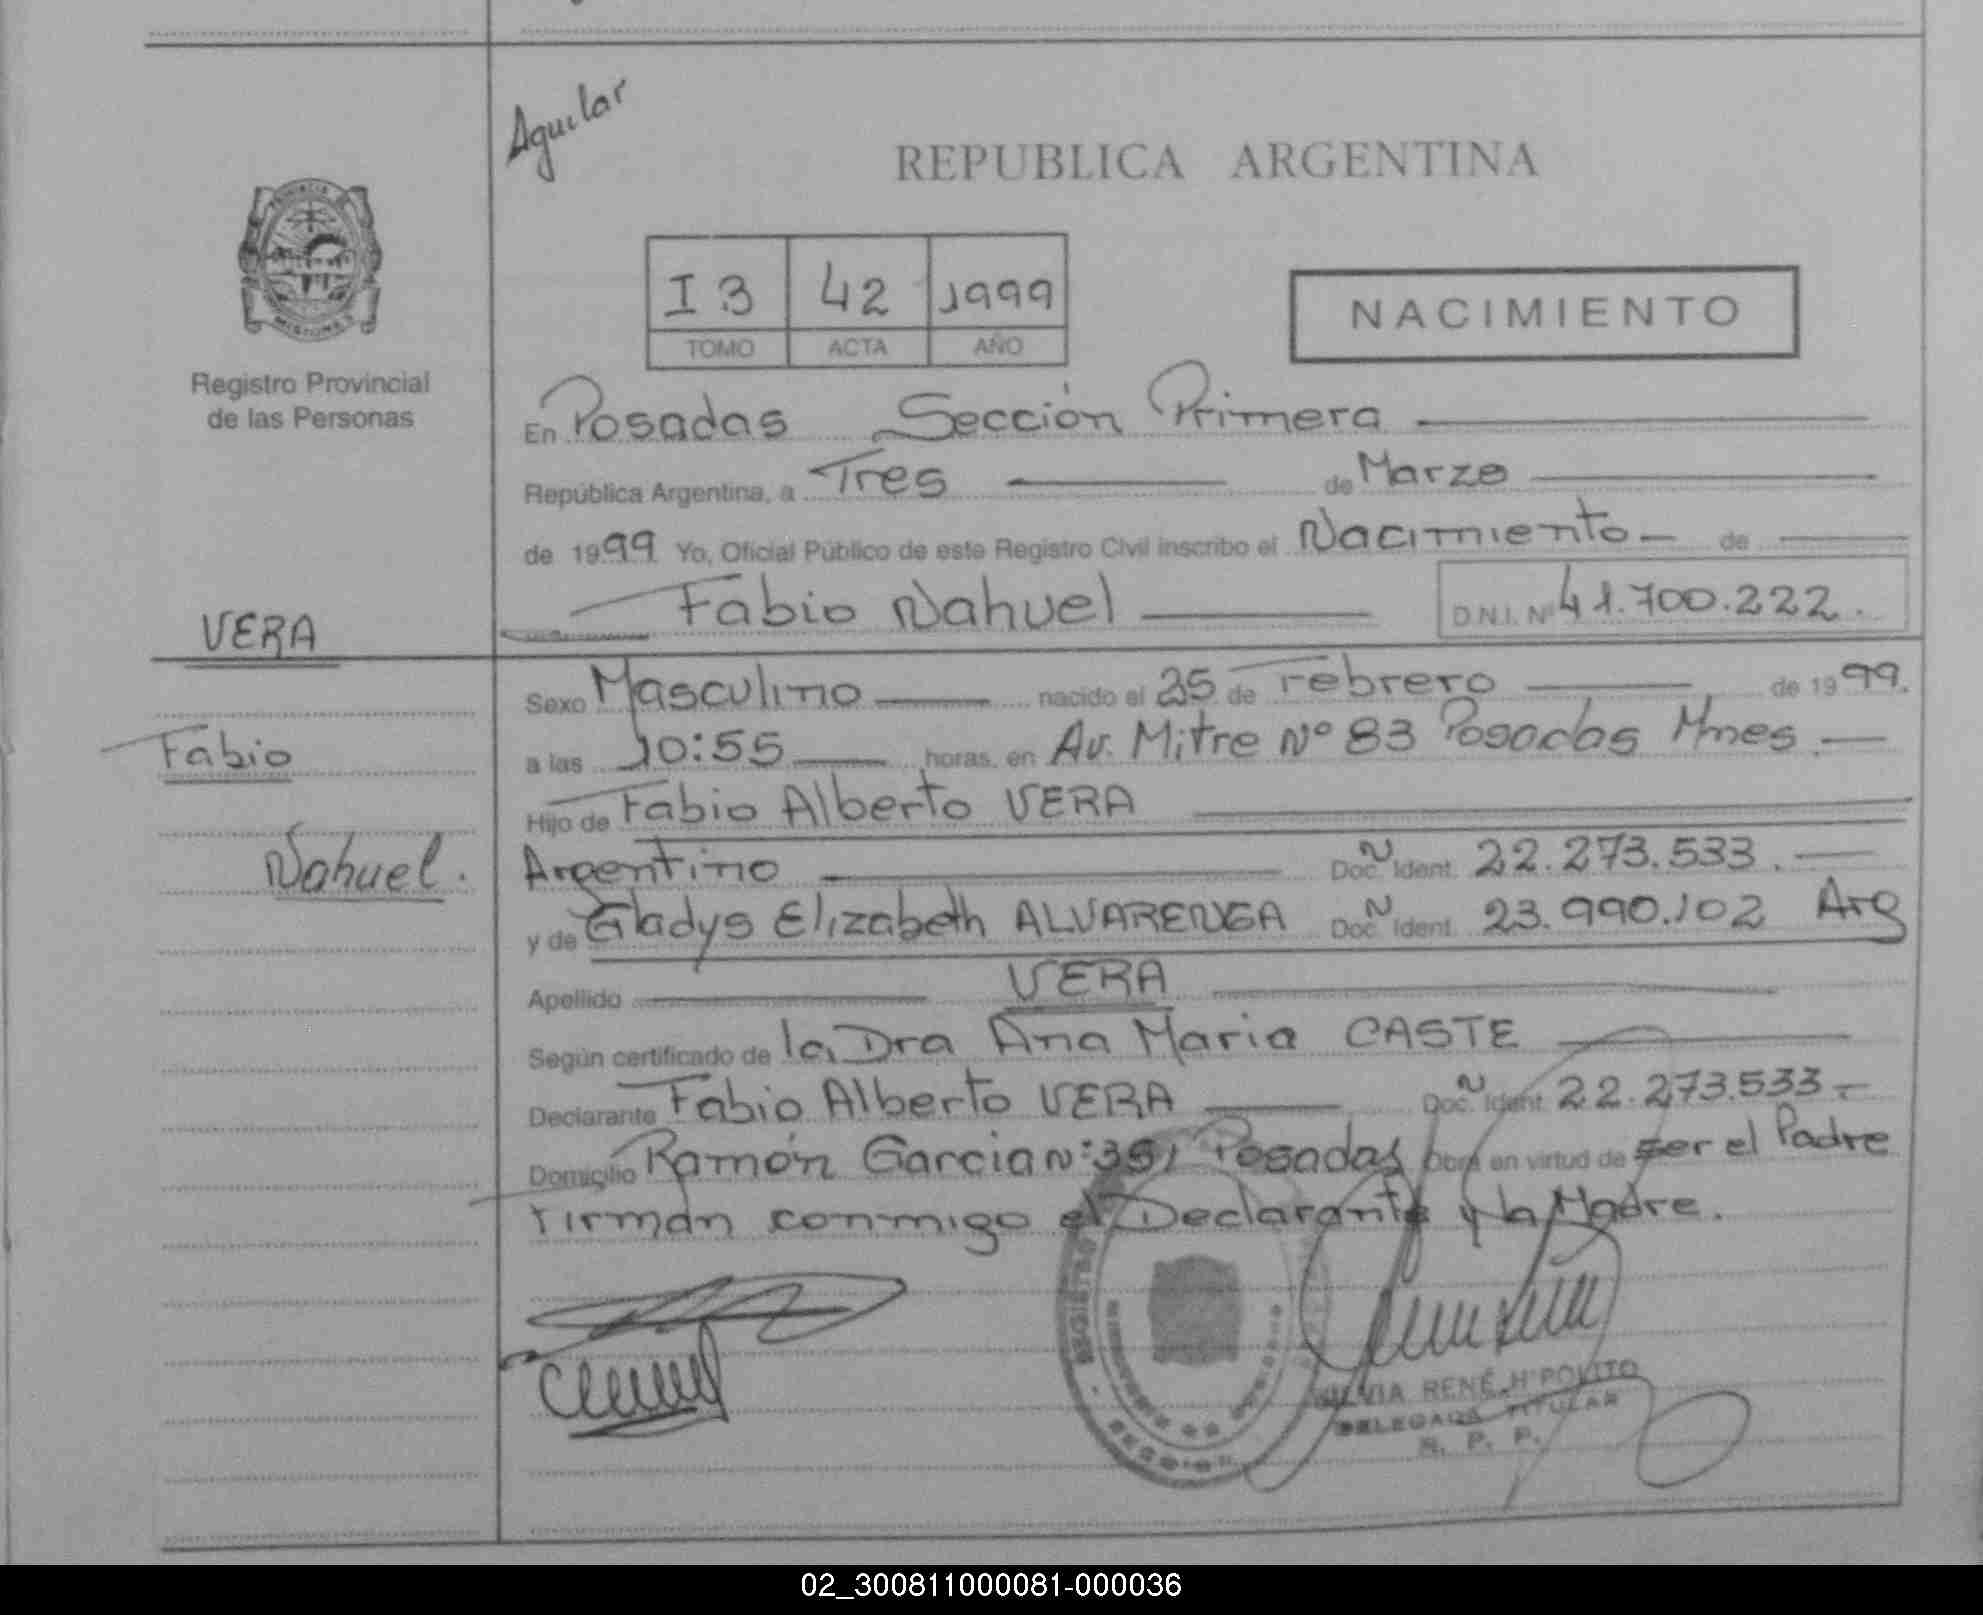 Aguilar
REPUBLICA ARGENTINA
PROVINCIA
MISIONES
Registro Provincial
de las Personas
I 3 42 1999
TOMO ACTA AÑO
NACIMIENTO
En Posadas Sección Primera
República Argentina, a Tres de Marzo
de 1999 Yo, Oficial Público de este Registro Civil inscribo el Nacimiento de
Fabio Nahuel D.N.I. Nº 41.700.222.
VERA
Fabio
Nahuel.
Sexo Masculino nacido el 25 de Febrero de 1999.
a las 10:55 horas, en Av. Mitre Nº 83 Posadas Mnes
Hijo de Fabio Alberto VERA
Argentino Doc. Ident. 22.273.533.
y de Gladys Elizabeth ALVARENGA Doc. Ident. 23.990.102 Arg
Apellido VERA
Según certificado de la Dra Ana Maria CASTE
Declarante Fabio Alberto VERA Doc. Ident. 22.273.533
Domicilio Ramón Garcia Nº 351 Posadas Obra en virtud de ser el Padre
Firman conmigo el Declarante y la Madre.
SILVIA RENÉ HIPOLITO
DELEGADA TITULAR
R. P. P.
02_300811000081-000036